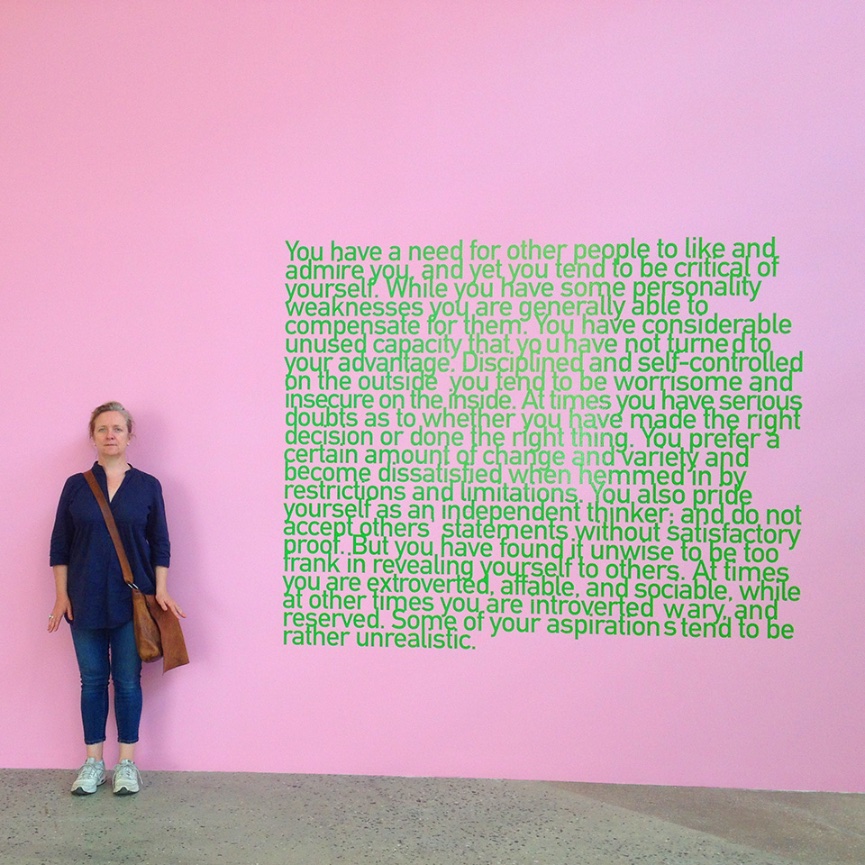 You have a need for other people to like and
admire you, and yet you tend to be critical of
yourself. While you have some personality
weaknesses you are generally able to
compensate for them. You have considerable
unused capacity that you have not turned to
your advantage. Disciplined and self-controlled
on the outside you tend to be worrisome and
insecure on the inside. At times you have serious
doubts as to whether you have made the right
decision or done the right thing. You prefer a
certain amount of change and variety and
become dissatisfied when hemmed in by
restrictions and limitations. You also pride
yourself as an independent thinker; and do not
accept others statements without satisfactory
proof. But you have found it unwise to be too
frank in revealing yourself to others. At times
you are extroverted, affable, and sociable, while
at other times you are introverted wary, and
reserved. Some of your aspirations tend to be
rather unrealistic.